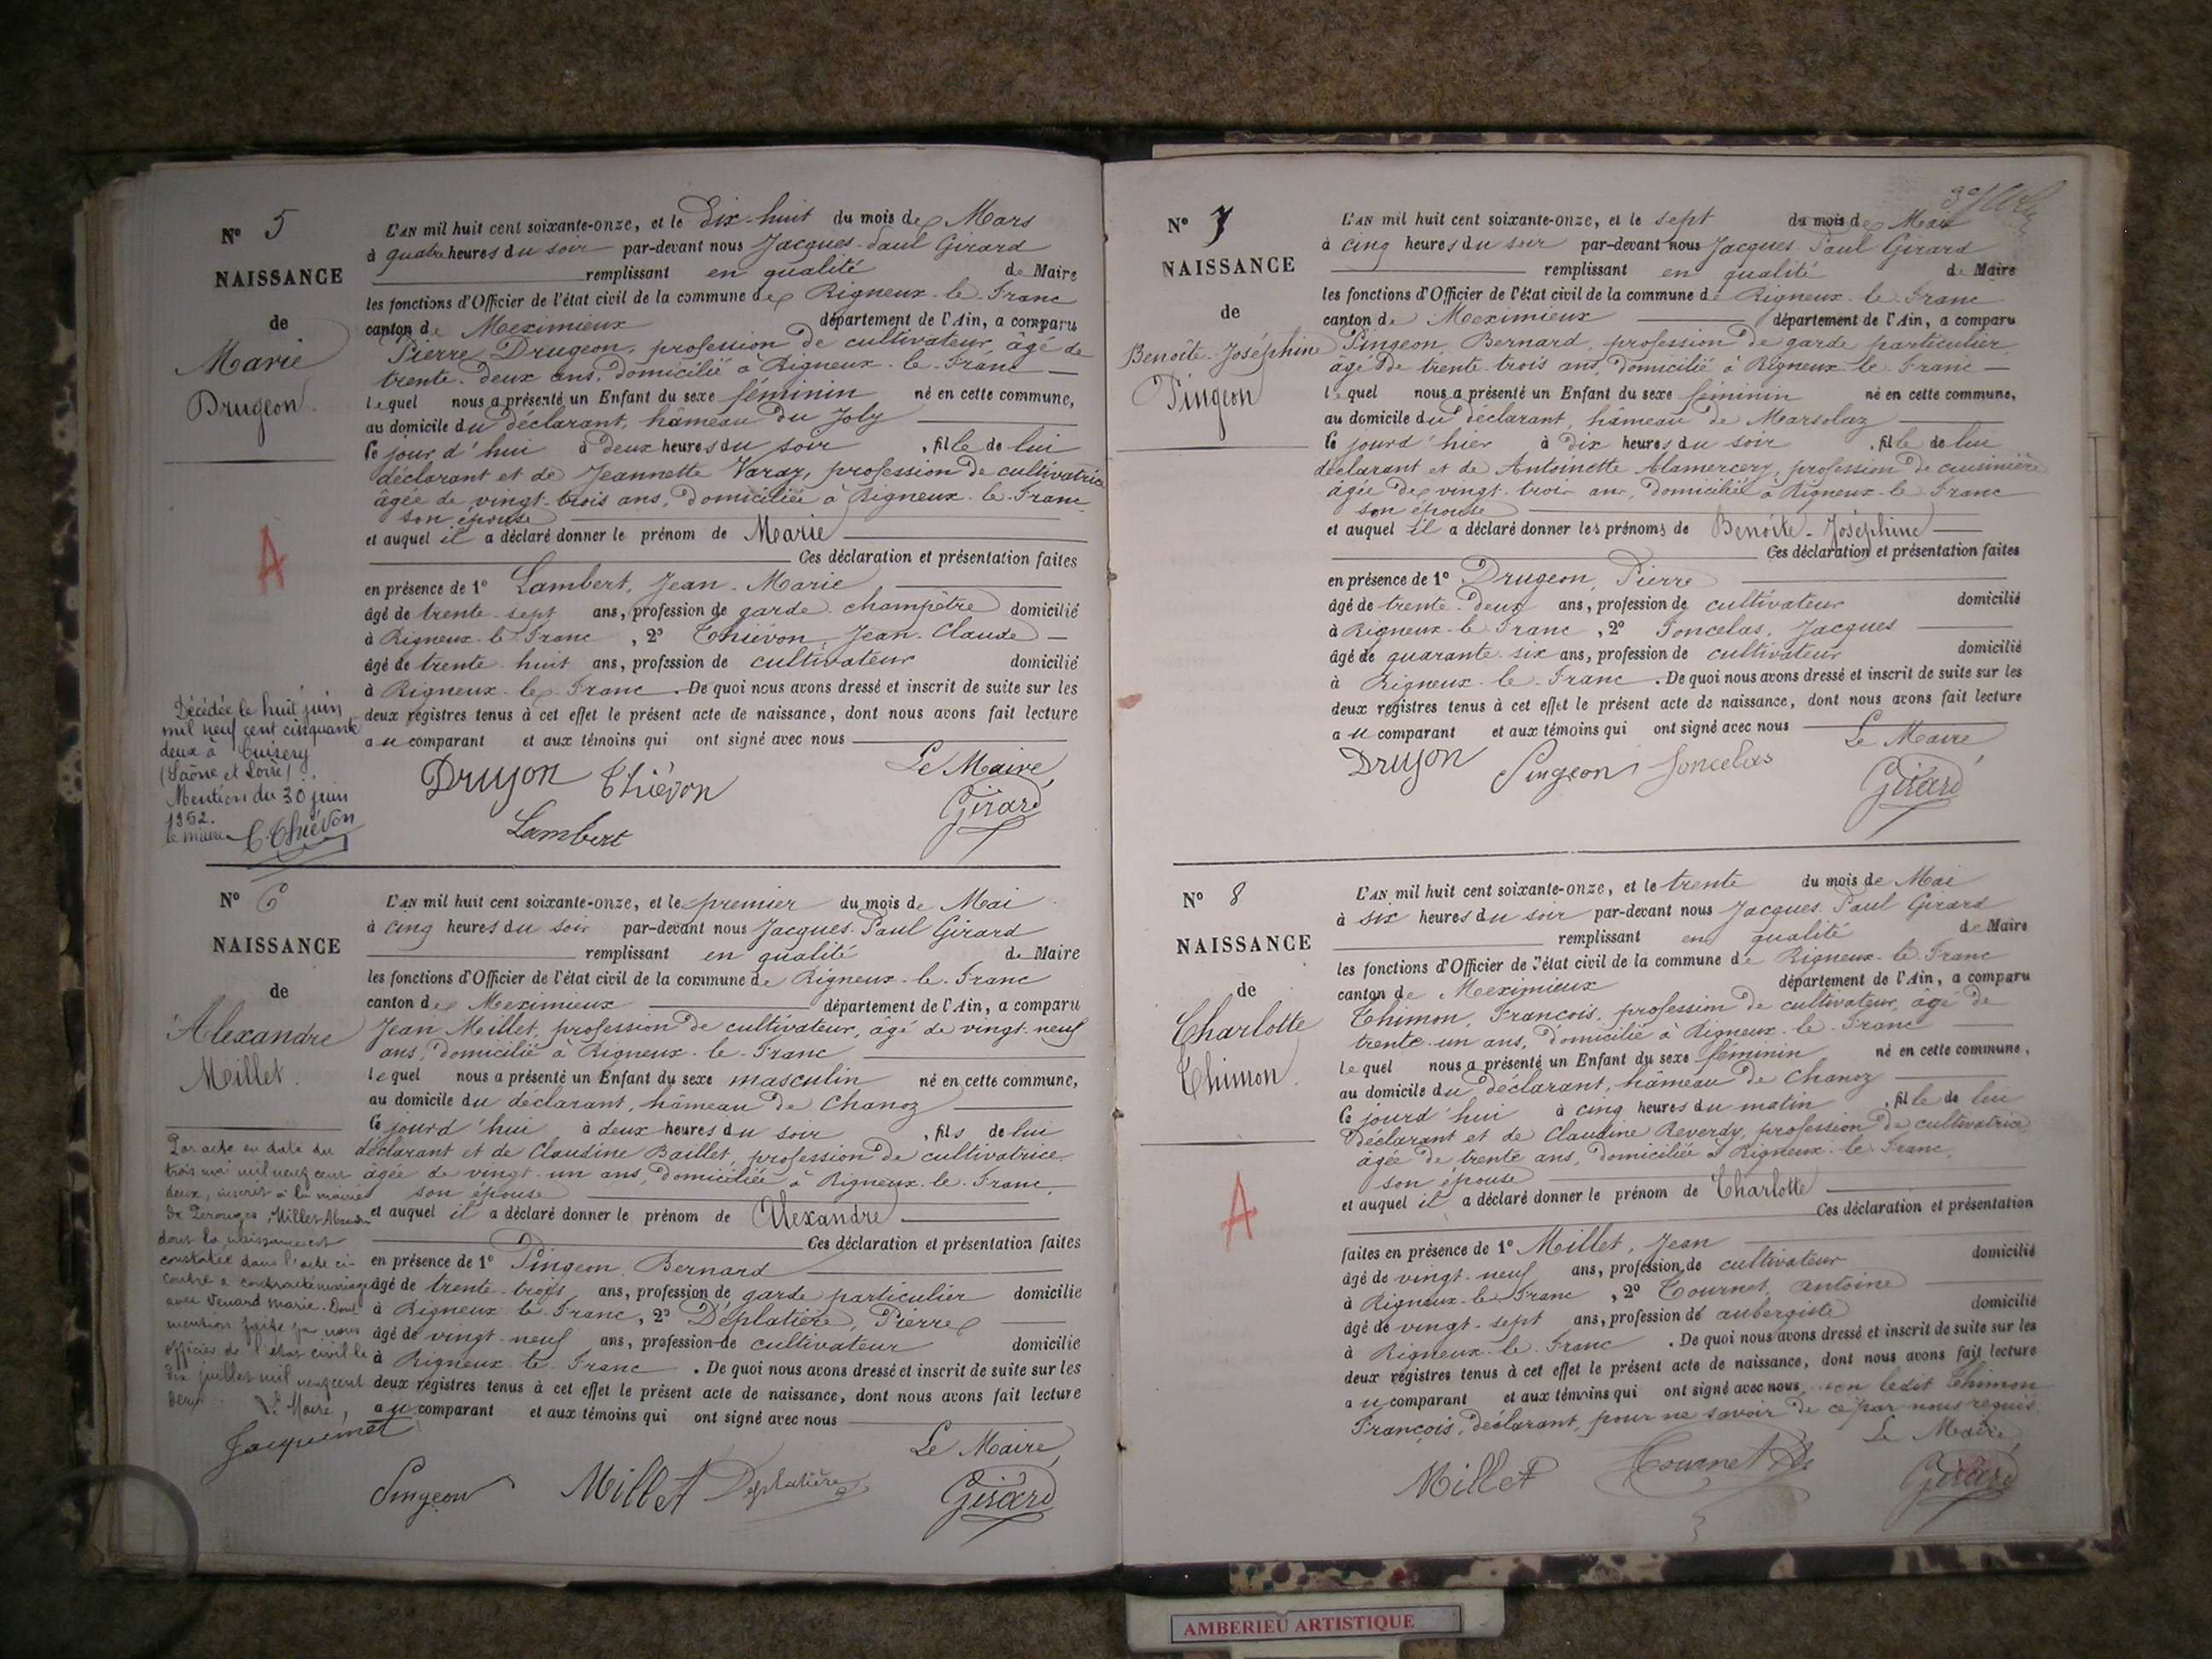 N° 5
NAISSANCE
de
Marie
Drugeon.
A
Décédée le huit juin
mil neuf cent cinquante
deux à Cuisery
(Saône et Loire).
Mention du 30 juin
1952.
le maire C. Thiévon
L'AN mil huit cent soixante-onze, et le dix-huit du mois de Mars
à quatre heures du soir par-devant nous Jacques-Paul Girard
remplissant en qualité de Maire
les fonctions d'Officier de l'état civil de la commune de Rigneux-le-Franc
canton de Meximieux département de l'Ain, a comparu
Pierre Drugeon, profession de cultivateur, âgé de
trente-deux ans, domicilié à Rigneux-le-Franc
lequel nous a présenté un Enfant du sexe féminin né en cette commune,
au domicile du déclarant, hâmeau du Joly
ce jour d'hui à deux heures du soir, fille de lui
déclarant et de Jeannette Varay, profession de cultivatrice
âgée de vingt-trois ans, domiciliée à Rigneux-le-Franc
son épouse
et auquel il a déclaré donner le prénom de Marie
Ces déclaration et présentation faites
en présence de 1° Lambert, Jean-Marie
âgé de trente-sept ans, profession de garde champêtre domicilié
à Rigneux-le-Franc, 2° Thiévon, Jean-Claude
âgé de trente-huit ans, profession de cultivateur domicilié
à Rigneux-le-Franc. De quoi nous avons dressé et inscrit de suite sur les
deux registres tenus à cet effet le présent acte de naissance, dont nous avons fait lecture
au comparant et aux témoins qui ont signé avec nous
Le Maire,
Drujon Thiévon
Girard
Lambert
N° 6
NAISSANCE
de
Alexandre
Millet.
Par acte en date du
trois mai mil neuf cent
deux, inscrit à la mairie
de Perouges, Millet Alexandre
dont la naissance est
constatée dans l'acte ci-
contre a contracté mariage
avec Venard Marie. Dont
mention faite par nous
officier de l'état civil le
dix juillet mil neuf cent
deux Le Maire,
Jacquemet
L'AN mil huit cent soixante-onze, et le premier du mois de Mai
à cinq heures du soir par-devant nous Jacques-Paul Girard
remplissant en qualité de Maire
les fonctions d'Officier de l'état civil de la commune de Rigneux-le-Franc
canton de Meximieux département de l'Ain, a comparu
Jean Millet, profession de cultivateur, âgé de vingt-neuf
ans, domicilié à Rigneux-le-Franc
lequel nous a présenté un Enfant du sexe masculin né en cette commune,
au domicile du déclarant, hâmeau de Chanoz
ce jourd'hui à deux heures du soir, fils de lui
déclarant et de Claudine Baillet, profession de cultivatrice
âgée de vingt-un ans, domiciliée à Rigneux-le-Franc,
son épouse
et auquel il a déclaré donner le prénom de Alexandre
Ces déclaration et présentation faites
en présence de 1° Pingeon, Bernard
âgé de trente-trois ans, profession de garde particulier domicilié
à Rigneux-le-Franc, 2° Déplatière, Pierre
âgé de vingt-neuf ans, profession de cultivateur domicilié
à Rigneux-le-Franc. De quoi nous avons dressé et inscrit de suite sur les
deux registres tenus à cet effet le présent acte de naissance, dont nous avons fait lecture
au comparant et aux témoins qui ont signé avec nous
Le Maire,
Pingeon Millet Deplatière
Girard
N° 7
NAISSANCE
de
Benoîte-Joséphine
Pingeon
L'AN mil huit cent soixante-onze, et le sept du mois de Mai
à cinq heures du soir par-devant nous Jacques-Paul Girard
remplissant en qualité de Maire
les fonctions d'Officier de l'état civil de la commune de Rigneux-le-Franc
canton de Meximieux département de l'Ain, a comparu
Pingeon, Bernard, profession de garde particulier,
âgé de trente-trois ans, domicilié à Rigneux-le-Franc
lequel nous a présenté un Enfant du sexe féminin né en cette commune,
au domicile du déclarant, hâmeau de Marsolaz
ce jourd'hier à dix heures du soir, fille de lui
déclarant et de Antoinette Alamercery, profession de cuisinière
âgée de vingt-trois ans, domiciliée à Rigneux-le-Franc
son épouse
et auquel il a déclaré donner les prénoms de Benoîte-Joséphine
Ces déclaration et présentation faites
en présence de 1° Drugeon, Pierre
âgé de trente-deux ans, profession de cultivateur domicilié
à Rigneux-le-Franc, 2° Joncelas, Jacques
âgé de quarante-six ans, profession de cultivateur domicilié
à Rigneux-le-Franc. De quoi nous avons dressé et inscrit de suite sur les
deux registres tenus à cet effet le présent acte de naissance, dont nous avons fait lecture
au comparant et aux témoins qui ont signé avec nous
Le Maire
Drujon Pingeon Joncelas
Girard
N° 8
NAISSANCE
de
Charlotte
Thimon.
A
L'AN mil huit cent soixante-onze, et le trente du mois de Mai
à six heures du soir par-devant nous Jacques-Paul Girard
remplissant en qualité de Maire
les fonctions d'Officier de l'état civil de la commune de Rigneux-le-Franc
canton de Meximieux département de l'Ain, a comparu
Thimon, François, profession de cultivateur, âgé de
trente-un ans, domicilié à Rigneux-le-Franc
lequel nous a présenté un Enfant du sexe féminin né en cette commune,
au domicile du déclarant, hâmeau de Chanoz
ce jourd'hui à cinq heures du matin, fille de lui
déclarant et de Claudine Reverdy, profession de cultivatrice
âgée de trente ans, domiciliée à Rigneux-le-Franc,
son épouse
et auquel il a déclaré donner le prénom de Charlotte
Ces déclaration et présentation
faites en présence de 1° Millet, Jean
âgé de vingt-neuf ans, profession de cultivateur domicilié
à Rigneux-le-Franc, 2° Tournet, Antoine
âgé de vingt-sept ans, profession de aubergiste domicilié
à Rigneux-le-Franc. De quoi nous avons dressé et inscrit de suite sur les
deux registres tenus à cet effet le présent acte de naissance, dont nous avons fait lecture
au comparant et aux témoins qui ont signé avec nous, non ledit Thimon
François, déclarant, pour ne savoir de ce par nous requis.
Le Maire,
Millet Tournet
Girard
AMBERIEU ARTISTIQUE